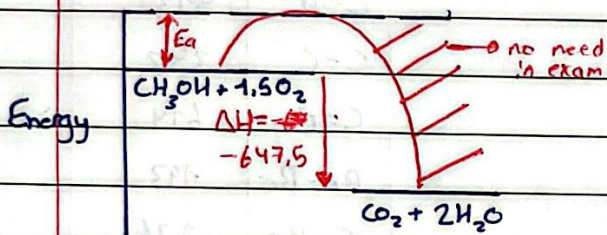 Ea
no need
in exam
CH₃OH + 1,5O₂
Energy
ΔH =
-647,5
CO₂ + 2H₂O